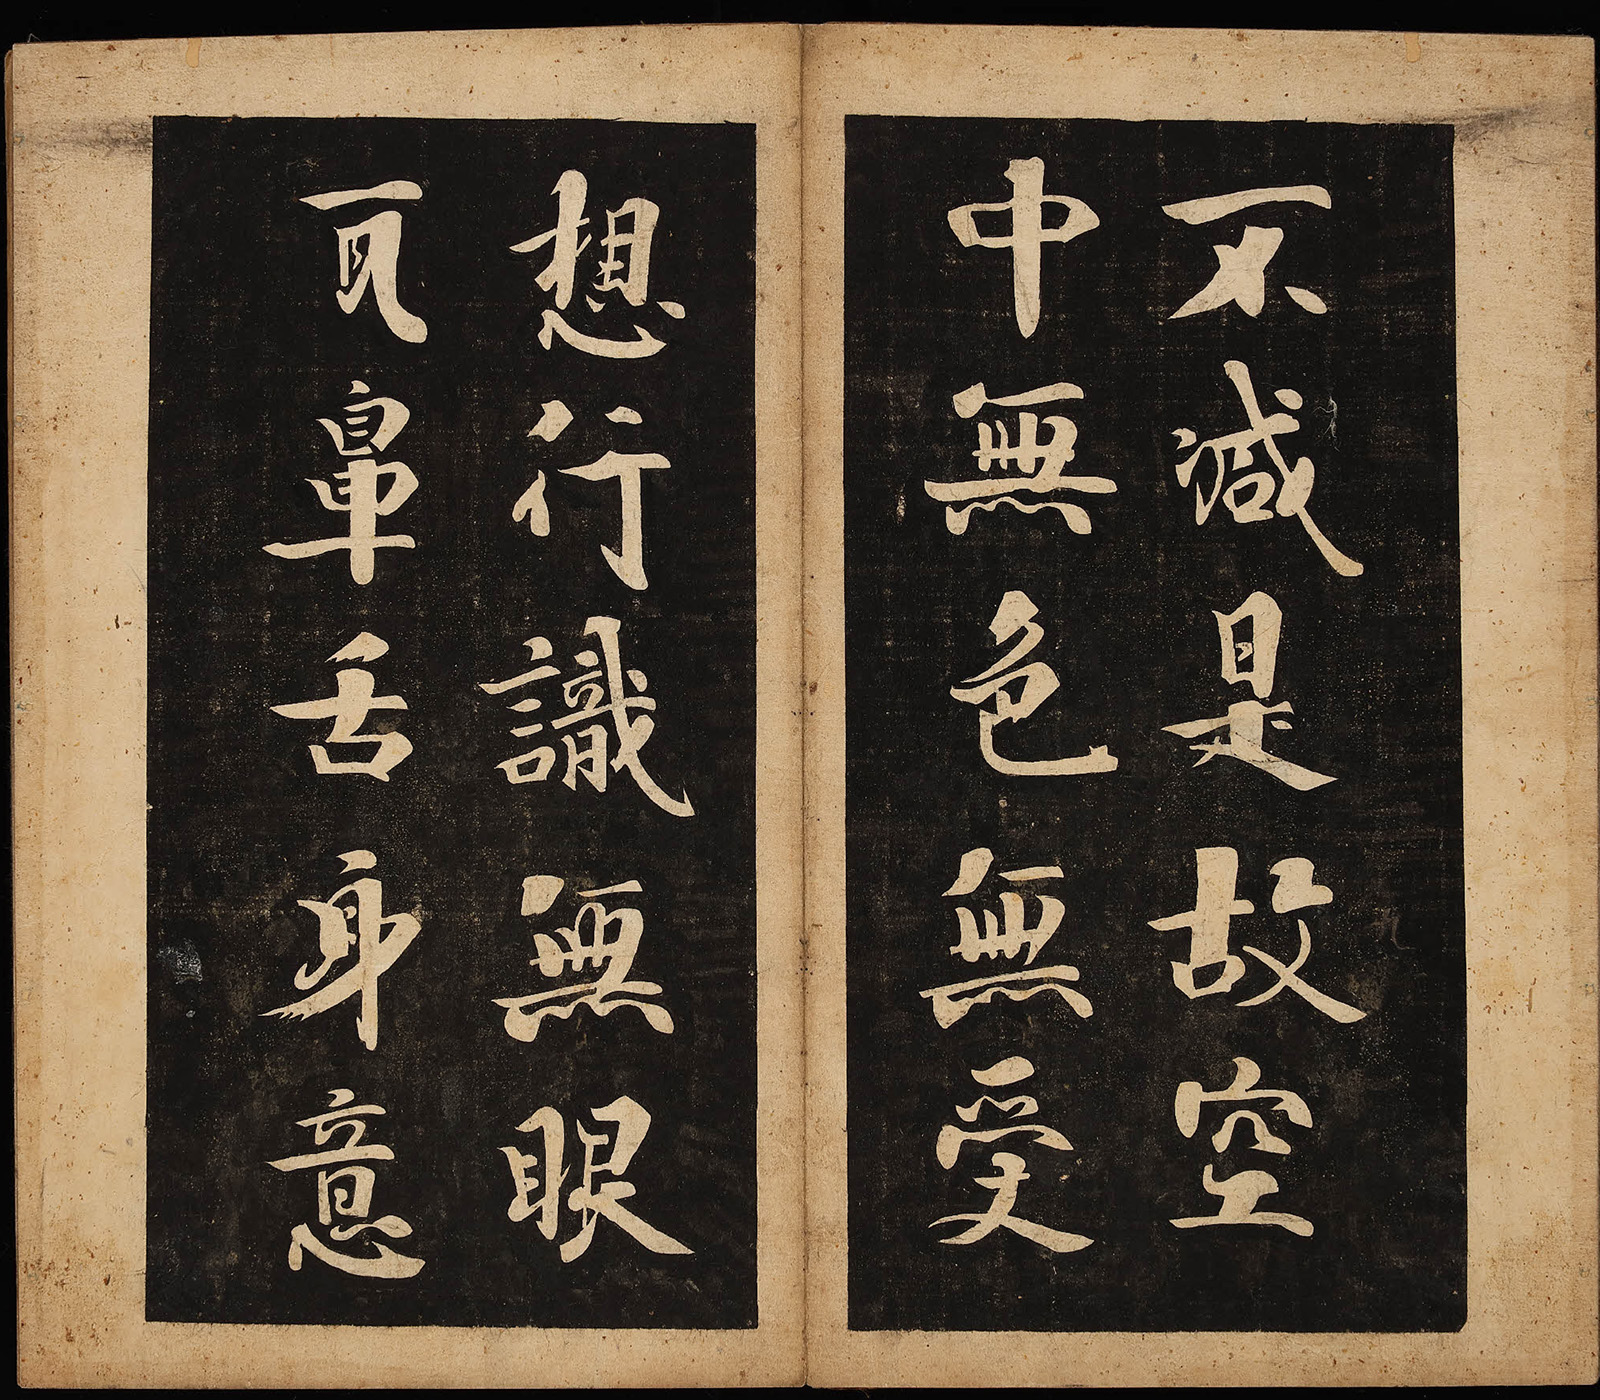 不減是故空
中無色無受
想行識無眼
耳鼻舌身意